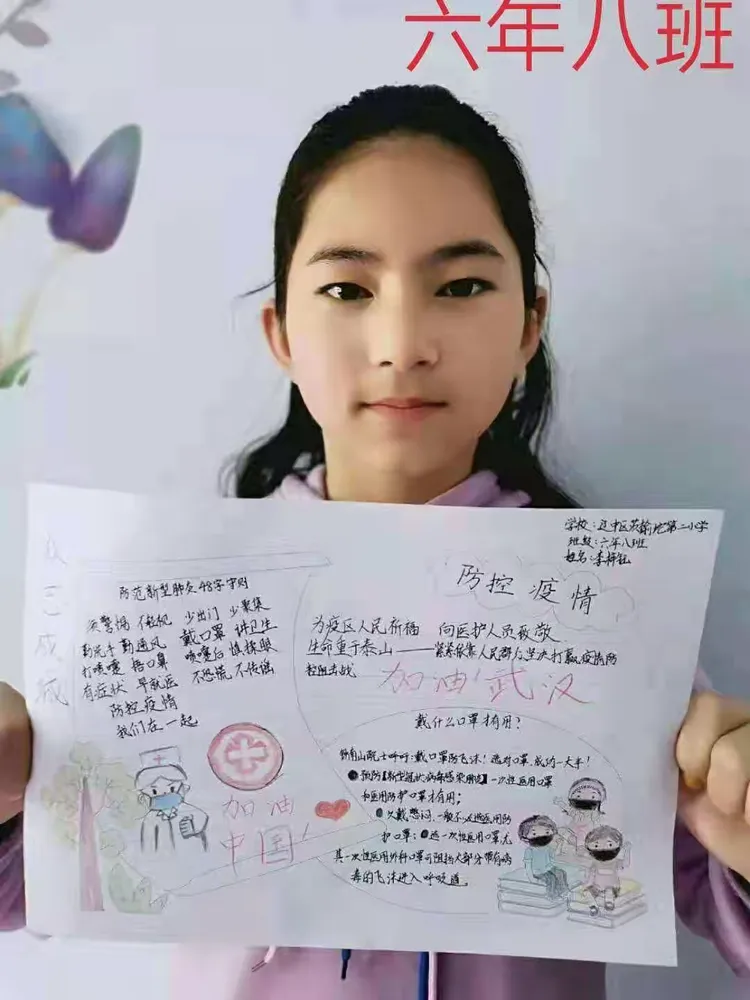 六年八班
学校:辽中区茨榆坨第二小学
班级:六年八班
姓名:李
防控 疫情
成城
防范新型肺炎48字守则
须警惕 不轻视 少出门 少聚集
勤洗手 勤通风 戴口罩 讲卫生
打喷嚏 捂口罩 喷嚏后 慎揉眼
有症状 早就医 不恐慌 不传谣
防控疫情
我们在一起
加油
中国!
为疫区人民祈福 向医护人员致敬
生命重于泰山——紧紧依靠人民群众坚决打赢疫情防
控阻击战
加油!武汉
戴什么口罩才有用?
钟南山院士呼吁:戴口罩防飞沫!选对口罩 成功一大半!
预防【新型冠状病毒感染肺炎】一次性医用口罩
和医用防护口罩才有用;
一般不 医用防
护口罩; 选一次性医用口罩尤
其一次性医用外科口罩可阻挡大部分带有病
毒的飞沫进入呼吸道